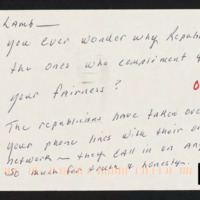 Lamb—
you ever wonder why Republi
the ones who compliment y
your fairness?
The republicans have taken over
your phone lines with their o
network — they call in on any
so much for truth & honesty.